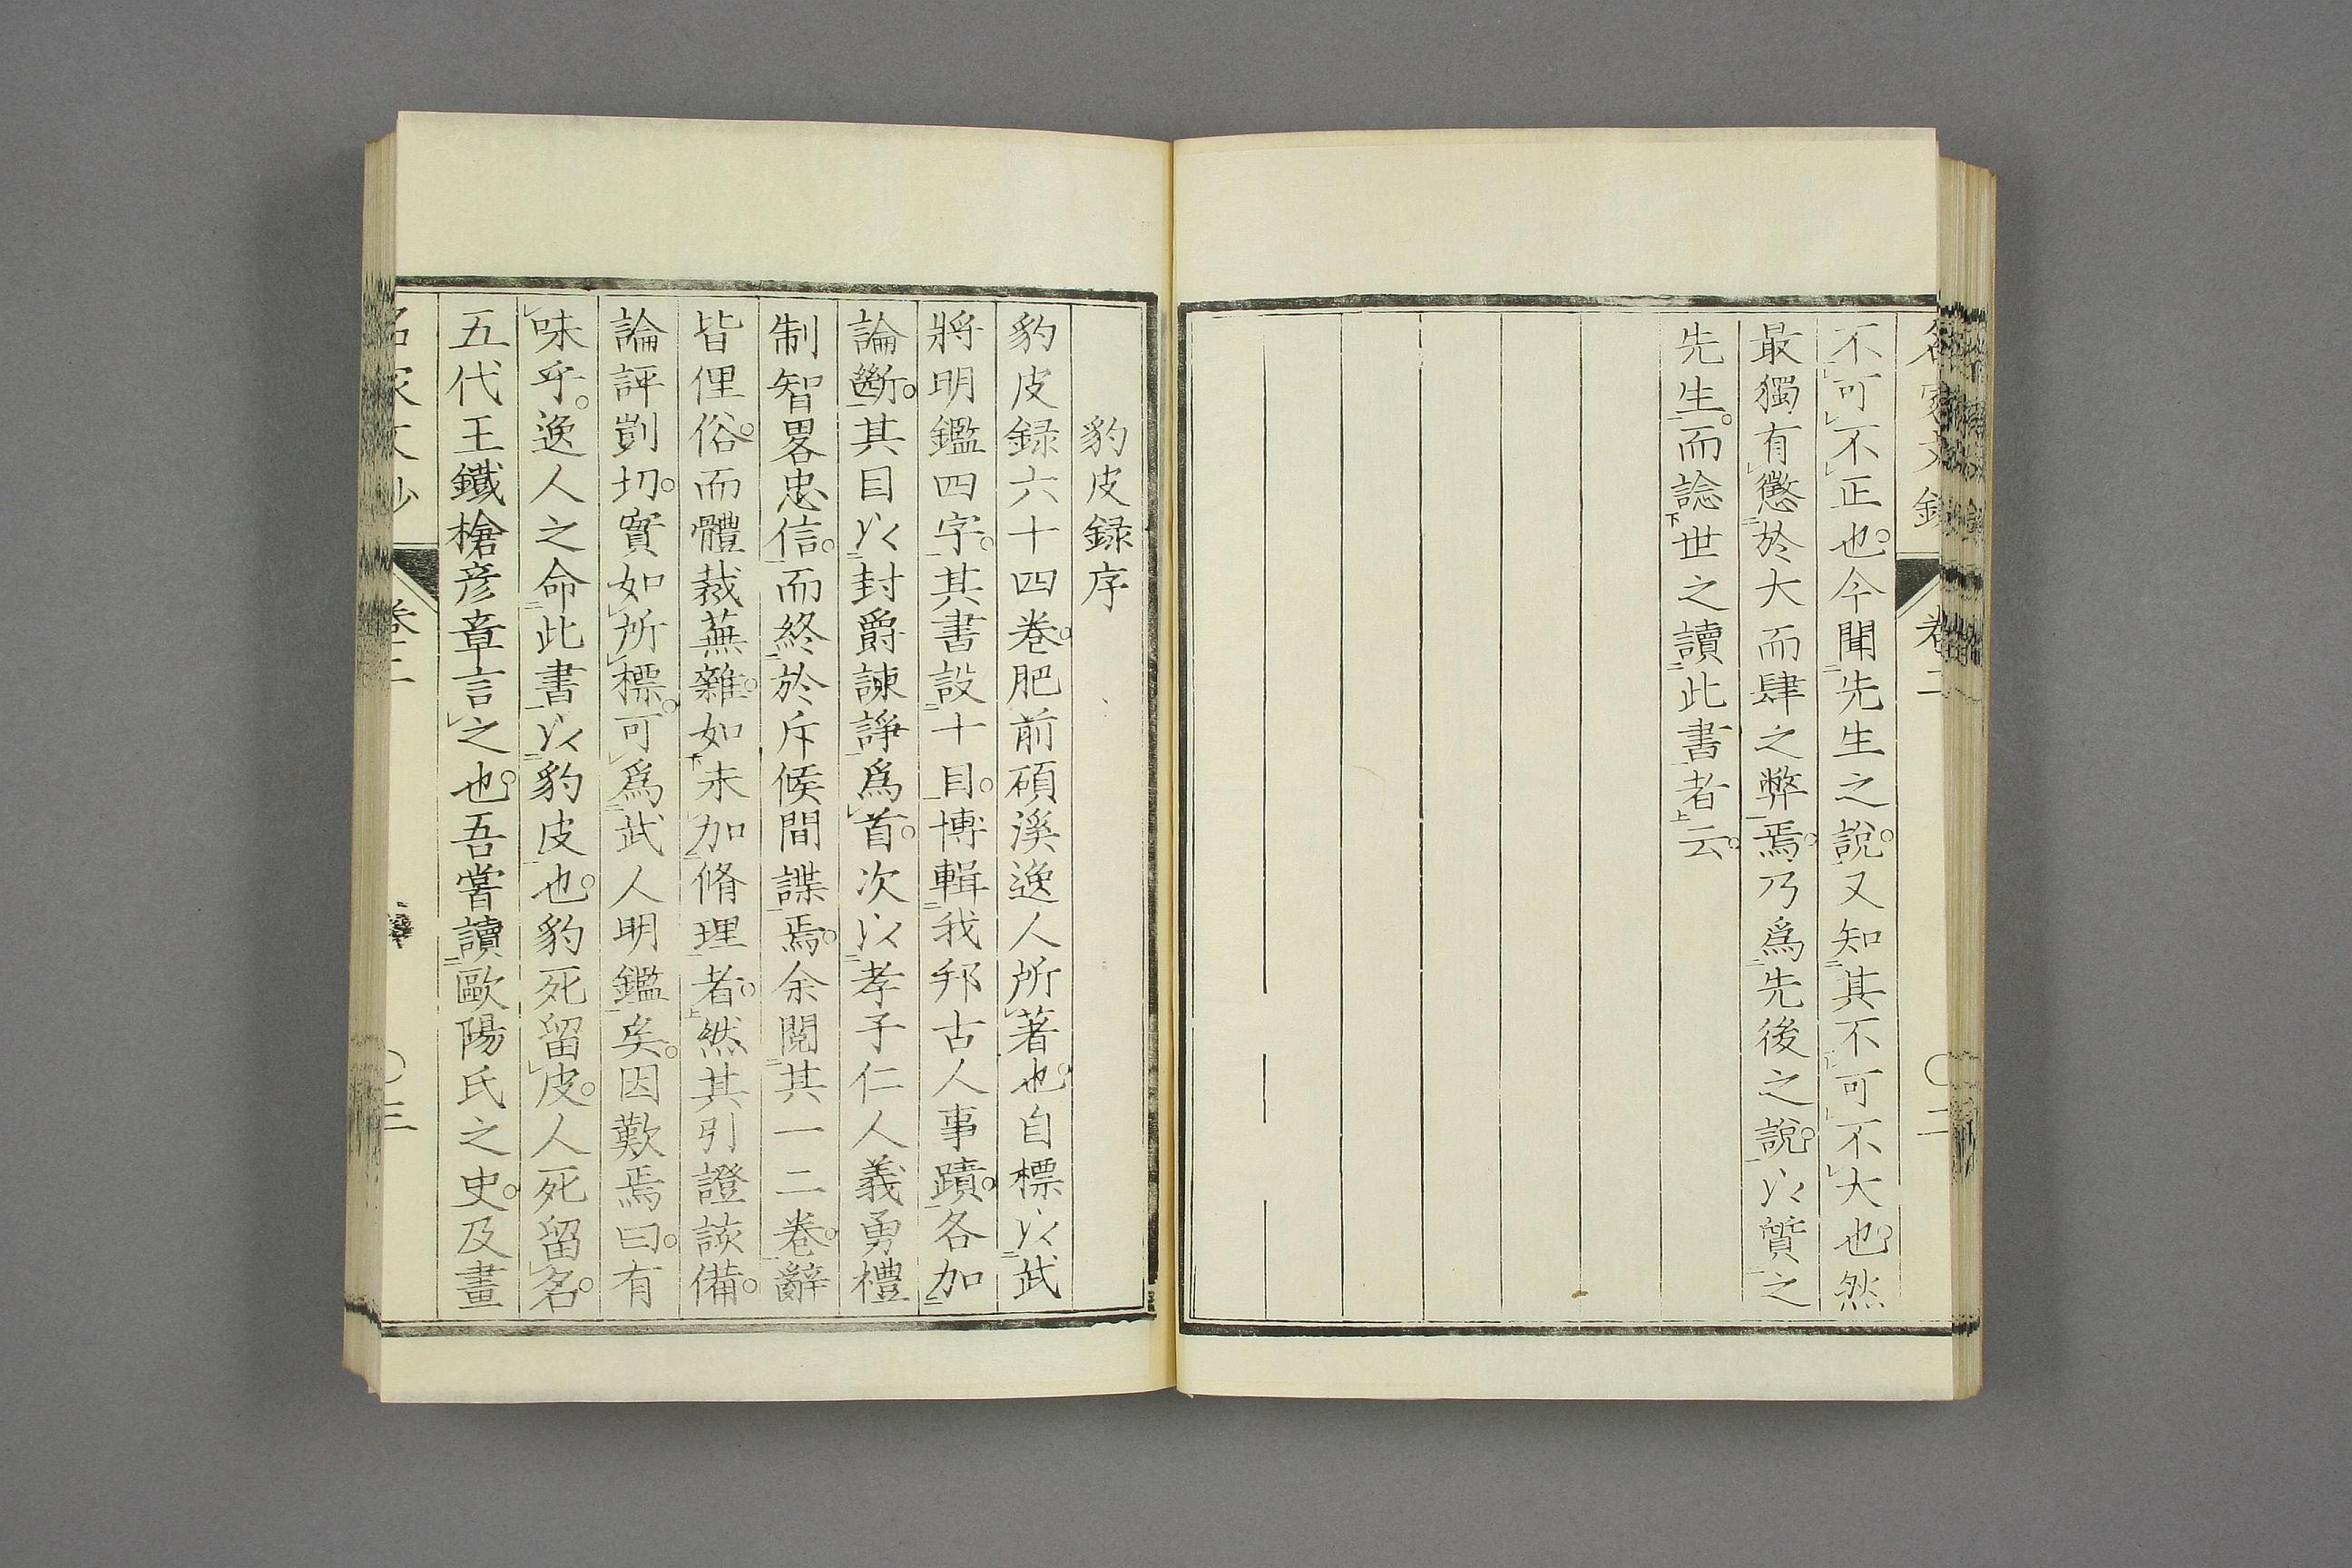 不可不正也。今聞先生之說。又知其不可不大也。然
最獨有懲於大而肆之弊焉。乃爲先後之說。以質之
先生。而諗世之讀此書者云。
豹皮録序
豹皮録六十四卷。肥前碩溪逸人所著也。自標以武
將明鑑四字。其書設十目。博輯我邦古人事蹟。各加
論斷。其目以封爵諫諍爲首。次以孝子仁人義勇禮
制智畧忠信。而終於斥候間諜焉。余閱其一二卷。辭
皆俚俗。而體裁蕪雜。如未加脩理者。然其引證該備。
論評剴切。實如所標。可爲武人明鑑矣。因歎焉曰。有
味乎。逸人之命此書以豹皮也。豹死留皮。人死留名。
五代王鐵槍彦章言之也。吾嘗讀歐陽氏之史。及畫